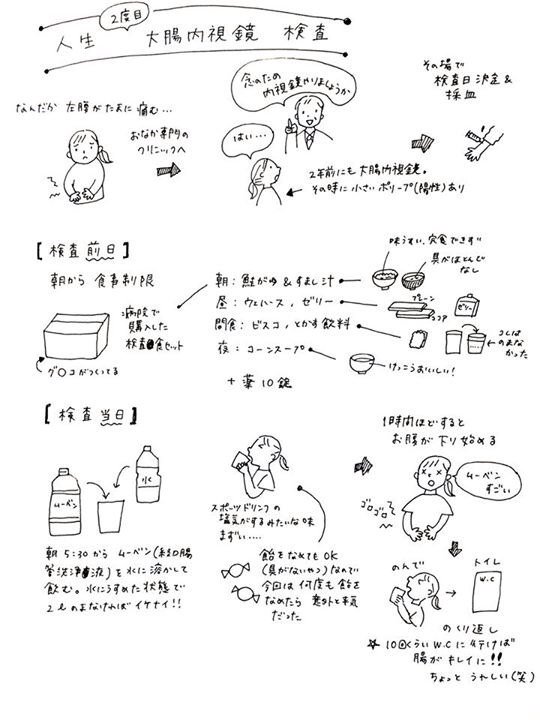 2度目
人生 大腸内視鏡 検査
なんだか 左腰がたまに 痛む…
おなか専門の
クリニックへ
念のため
内視鏡やりましょうか
はい…
その場で
検査日決定&
採血
2年前にも大腸内視鏡。
その時に小さいポリープ(陽性)あり
[検査前日]
朝から 食事制限
病院で
購入した
検査食セット
グ○コがつくってる
朝：鮭がゆ&すまし汁
昼：ウェハース, ゼリー
間食：ビスコ, とかす飲料
夜：コーンスープ
味うすい, 完食できず
具がほとんど
なし
プレーン
ココア
ゼリー
コレは
のまな
かった
けっこうおいしい!
+薬10錠
[検査当日]
ムーベン
水
朝 5:30から ムーベン(経口腸
管洗浄液)を水に溶かして
飲む。水にうすめた状態で
2ℓのまなければイケナイ!!
スポーツドリンクの
塩気がするみたいな味
まずい….
飴をなめてもOK
(具がないやつ)なので
今回は何度も飴を
なめたら 意外と平気
だった
1時間ほどすると
お腹が下り始める
ムーベン
すごい
ゴロゴロ
のんで
トイレ
W.C
のくり返し
☆10回くらいW.Cに行けば
腸がキレイに!!
ちょっと うれしい(笑)